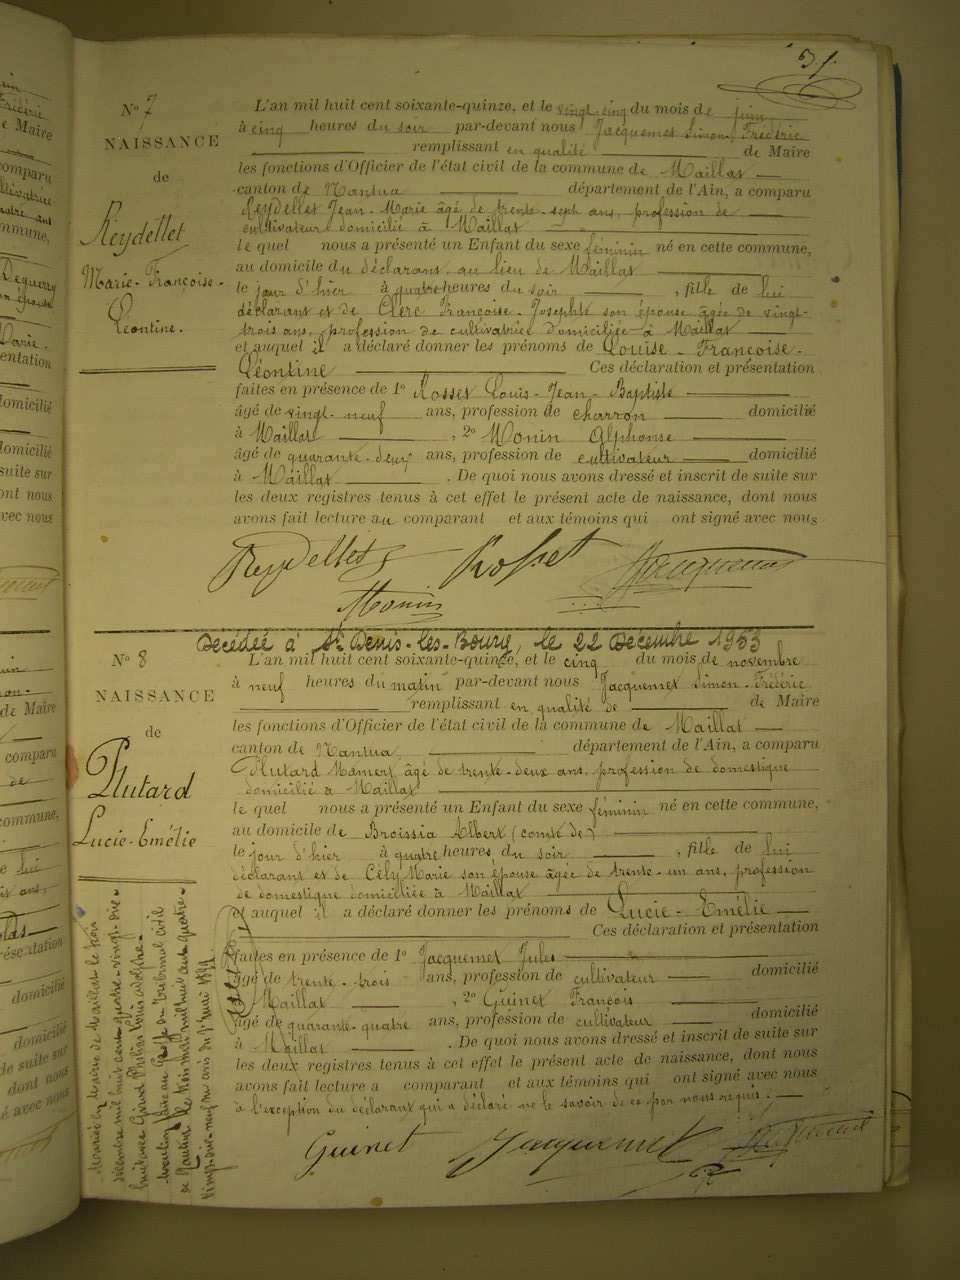 31
N° 7
NAISSANCE
de
Reydellet
Marie-Françoise-
Léontine.
L'an mil huit cent soixante-quinze, et le vingt-cinq du mois de juin
à cinq heures du soir par-devant nous Jacquemet Simon, Frédéric
remplissant en qualité de Maire
les fonctions d'Officier de l'état civil de la commune de Maillat
canton de Nantua département de l'Ain, a comparu
Reydellet Jean-Marie âgé de trente-sept ans, profession de
cultivateur domicilié à Maillat
le quel nous a présenté un Enfant du sexe féminin né en cette commune,
au domicile du déclarant au lieu de Maillat
le jour d'hier à quatre heures du soir , fille de lui
déclarant et de Clerc Françoise-Josephte son épouse âgée de vingt-
trois ans, profession de cultivatrice domiciliée à Maillat
et auquel il a déclaré donner les prénoms de Louise-Françoise-
Léontine Ces déclaration et présentation
faites en présence de 1° Rosset Louis-Jean-Baptiste
âgé de vingt-neuf ans, profession de charron domicilié
à Maillat , 2° Monin Alphonse
âgé de quarante-deux ans, profession de cultivateur domicilié
à Maillat . De quoi nous avons dressé et inscrit de suite sur
les deux registres tenus à cet effet le présent acte de naissance, dont nous
avons fait lecture au comparant et aux témoins qui ont signé avec nous
Reydellet Rosset Jacquemet
Monin
Décédée à St Denis-les-Bourg, le 22 Décembre 1953
N° 8
NAISSANCE
de
Plutard
Lucie-Emélie
L'an mil huit cent soixante-quinze, et le cinq du mois de novembre
à neuf heures du matin par-devant nous Jacquemet Simon-Frédéric
remplissant en qualité de de Maire
les fonctions d'Officier de l'état civil de la commune de Maillat
canton de Nantua, département de l'Ain, a comparu
Plutard Mamert âgé de trente-deux ans, profession de domestique
domicilié à Maillat
le quel nous a présenté un Enfant du sexe féminin né en cette commune,
au domicile de Broissia Albert (comte de)
le jour d'hier à quatre heures du soir , fille de lui
déclarant et de Cély Marie son épouse âgée de trente-un ans, profession
de domestique domiciliée à Maillat
et auquel il a déclaré donner les prénoms de Lucie-Emélie
Ces déclaration et présentation
faites en présence de 1° Jacquemet Jules
âgé de trente-trois ans, profession de cultivateur domicilié
Maillat , 2° Guinet François
âgé de quarante-quatre ans, profession de cultivateur domicilié
à Maillat . De quoi nous avons dressé et inscrit de suite sur
les deux registres tenus à cet effet le présent acte de naissance, dont nous
avons fait lecture a comparant et aux témoins qui ont signé avec nous
à l'exception du déclarant qui a déclaré ne le savoir de ce par nous requis.
Guinet Jacquemet Jacquemet
Mariée à la Mairie de Maillat le trois
décembre mil huit cent quatre-vingt-dix-
huit avec Girod Louis Adolphe.
Mention faite au Greffe du Tribunal civil
de Nantua le trois mai mil huit cent quatre-
vingt-dix-neuf